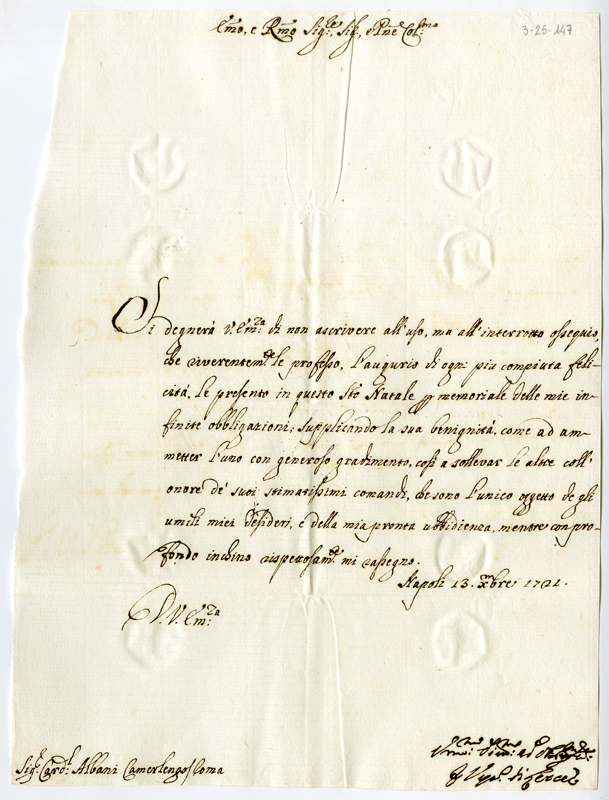 Emo, e Rmo Sig.re, Sig.r, Pne Col.mo
3-25-147
Si degnerà V. Em.za di non ascrivere all'uso, ma all'interrotto ossequio,
che riverentem.te le professo, l'augurio di ogni piu compiuta feli-
cità, le presento in questo Sto Natale p memoriale delle mie in-
finite obbligazioni, supplicando la sua benignità, come ad am-
metter l'uno con generoso gradimento, così a sollevar le altre coll'
onore de' suoi stimatissimi comandi, che sono l'unico oggetto de gli
umili miei desideri, e della mia pronta ubbidienza, mentre con pro-
fondo inchino rispettosam.te mi rassegno.
Napoli 13. Xmbre 1721.
D. V. Em.za
Sig.r Card.l Albani Camerlengo Roma